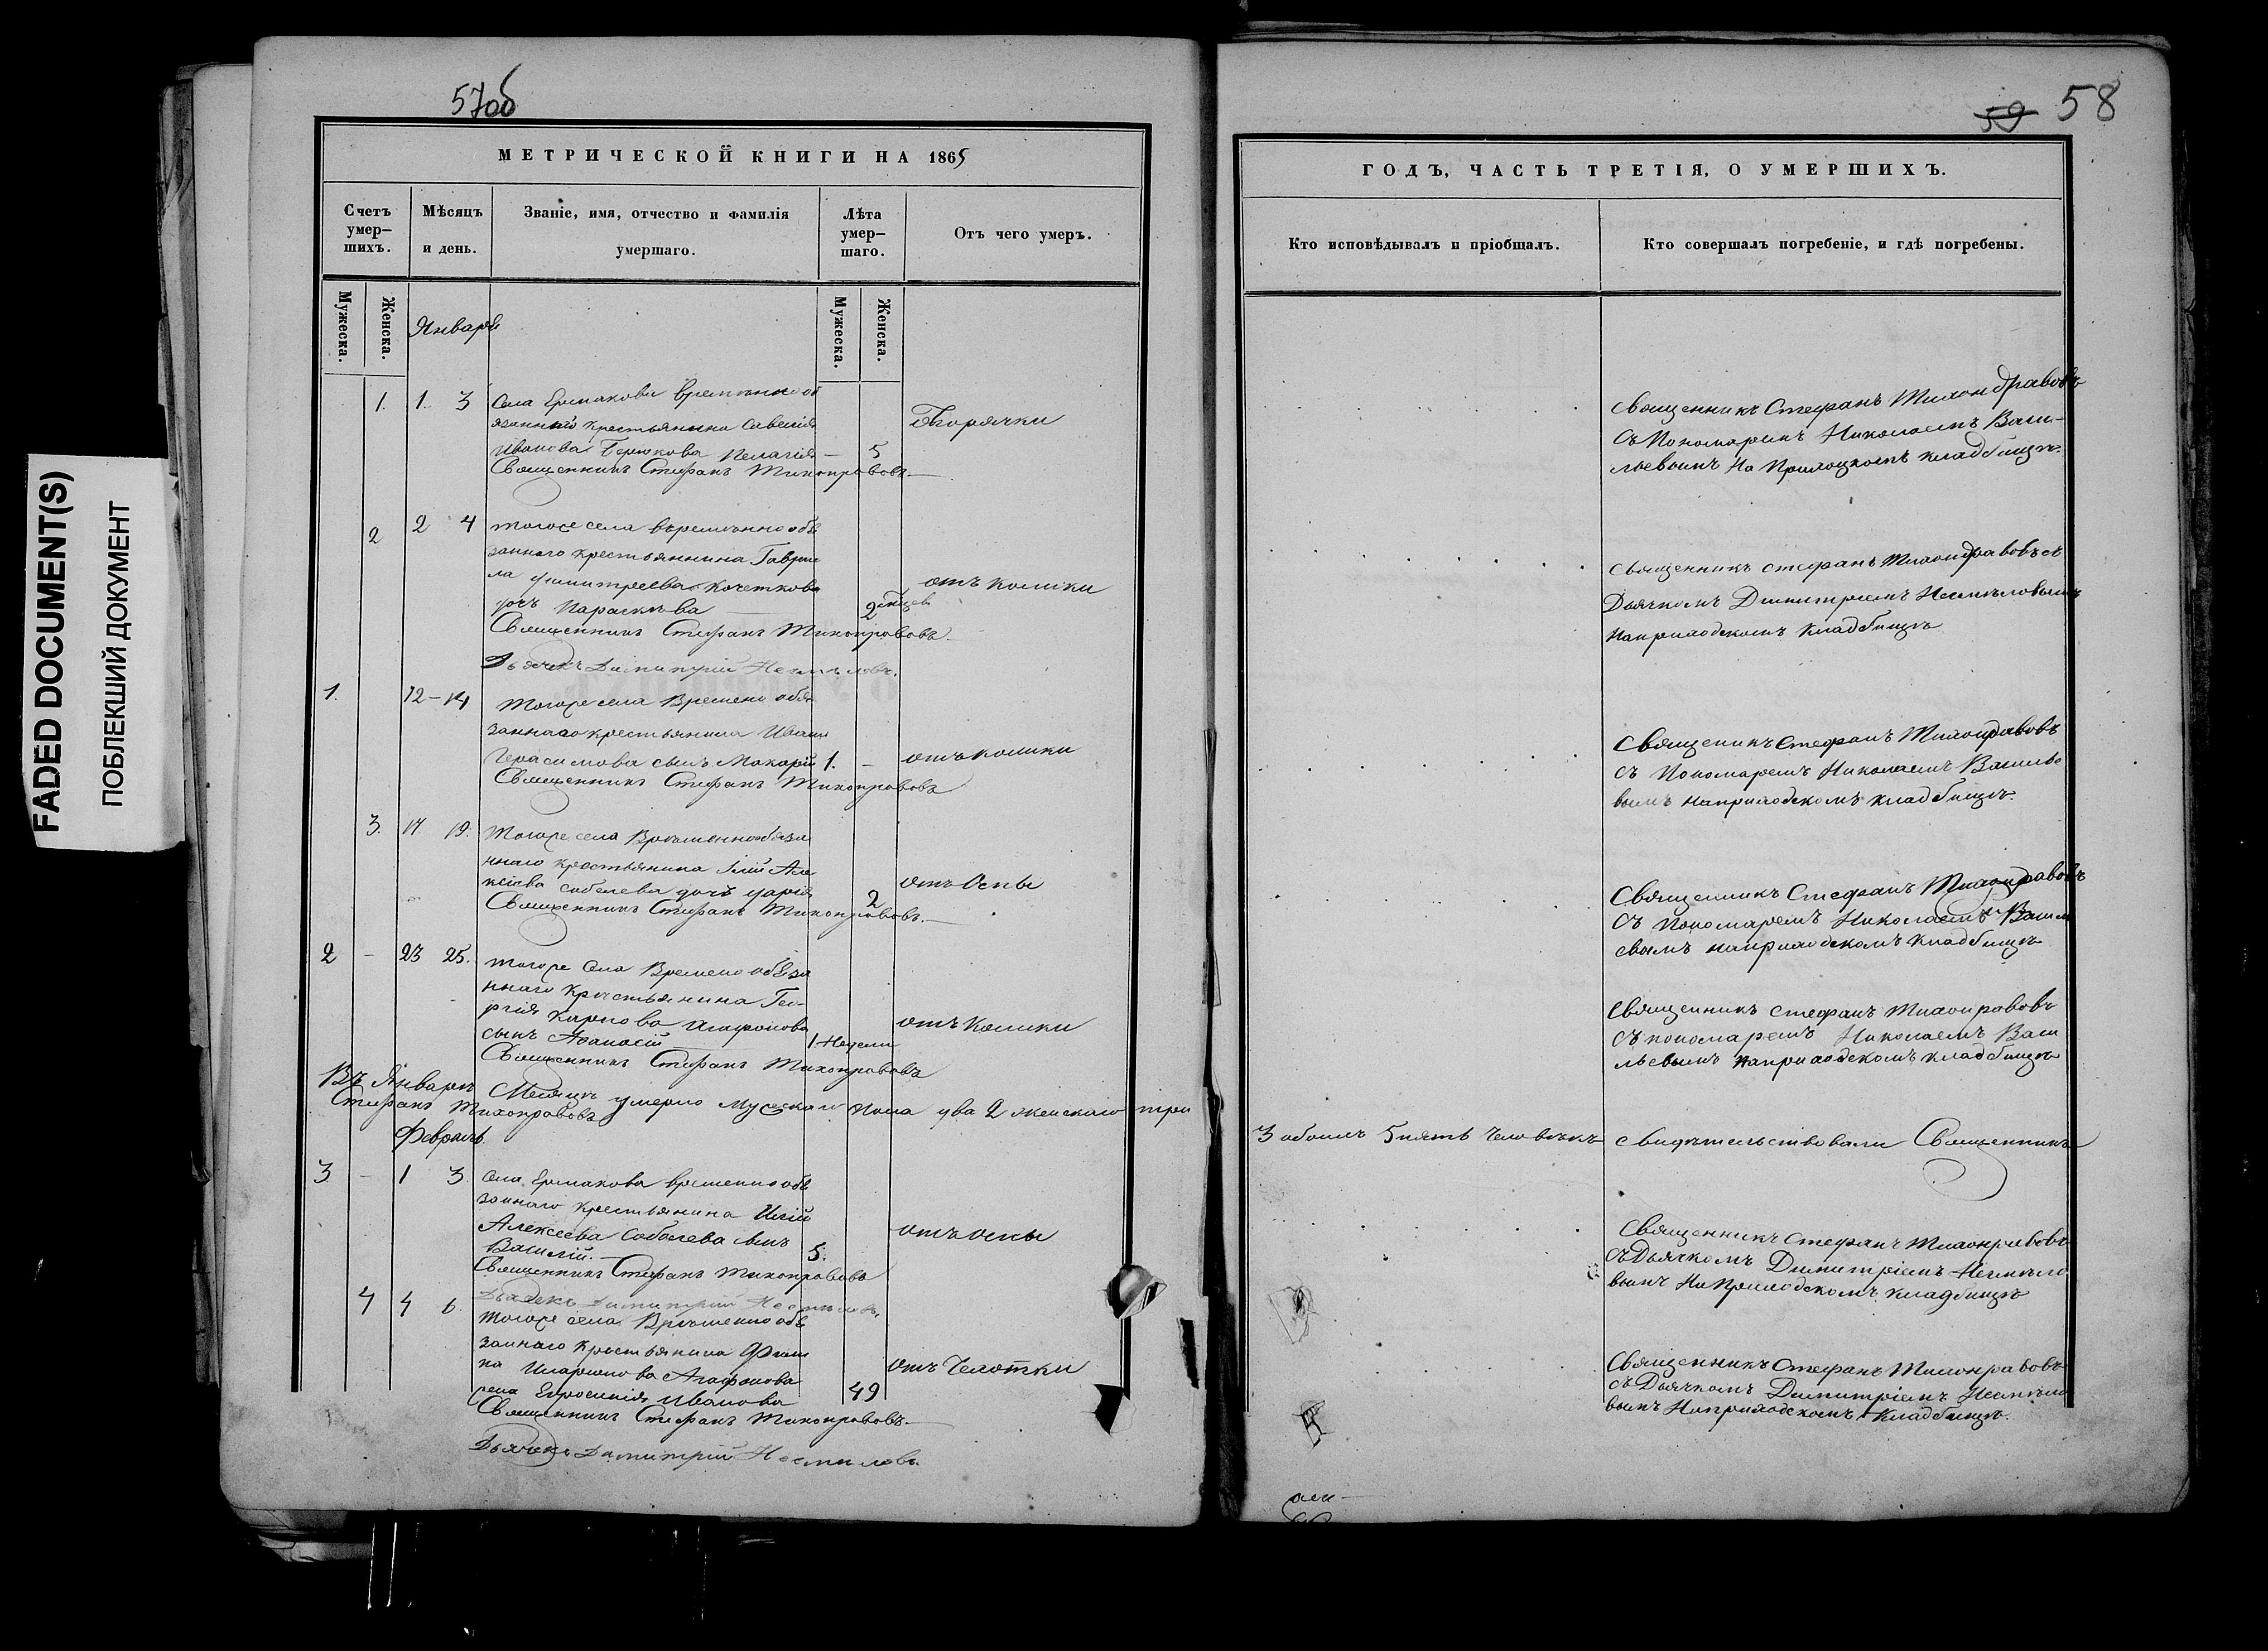 FADED DOCUMENT(S)
ПОБЛЕКШИЙ ДОКУМЕНТ
57об
МЕТРИЧЕСКОЙ КНИГИ НА 1865
Счетъ умер-шихъ.
Мѣсяцъ и день.
Званіе, имя, отчество и фамилія умершаго.
Лѣта умер-шаго.
Отъ чего умеръ.
Мужеска.
Женска.
Мужеска.
Женска.
Января
1. 1. 3 Села Ермакова временно об
язанный крестьянина Савелія
Иванова Пелагія — 5
Горячки
Священникъ Стефанъ Тихонравовъ.
2 2 4 тогоже села временно обя
заннаго крестьянина Гаври
ла Димитреева Кочеткова
дочь Параскѣва 2
отъ колики
Священникъ Стефанъ Тихонравовъ.
Дьячекъ Димитрій Несмѣловъ.
1. 12 – 14 Тогоже села Времено обя
заннаго крестьянина Ивана
Герасимова сынъ Макарій 1. –
отъ колики
Священникъ Стефанъ Тихонравовъ
3. 17 19. Тогоже села Врѣменнообяза
ннаго крестьянина Илій Але
ксіева Соболева дочь Дарія 2
отъ Оспы
Священникъ Стефанъ Тихонравовъ.
2 – 23 25. тогоже Села Времено обяза
ннаго Крестьянина Гео-
ргія Карпова Агафонова
сынъ Афанасій 1. Недели
отъ Колики
Священникъ Стефанъ Тихонравовъ
Въ Январѣ Месяцѣ умерло Мужескаго пола два 2 женскаго три
Стефанъ Тихонравовъ
Февраль
3 – 1 3. Села Ермакова временно обя
заннаго крестьянина Илій
Алексеева Соболева сынъ
Василій. 5.
отъ оспы
Священникъ Стефанъ Тихонравовъ
Дьячекъ Димитрій Несмѣловъ.
4 4 6. Тогоже села Врѣменно обя
заннаго Крестьянина Фили
па Иларіонова Агафонова
жена Ефросинія Иванова 49
отъ Чехотки
Священникъ Стефанъ Тихонравовъ.
Дьячекъ Димитрій Несмѣловъ.
59 58
ГОДЪ, ЧАСТЬ ТРЕТІЯ, О УМЕРШИХЪ.
Кто исповѣдывалъ и пріобщалъ.
Кто совершалъ погребеніе, и гдѣ погребены.
Священникъ Стефанъ Тихонравовъ
Съ Пономаремъ Николаемъ Васи-
льевымъ На Приходскомъ кладбищѣ.
Священникъ Стефанъ Тихонравовъ съ
Дьячкомъ Димитріемъ Несмѣловымъ
Наприходскомъ Кладбищѣ
Священикъ Стефанъ Тихонравовъ
съ Пономаремъ Николаемъ Василье
вымъ Наприходскомъ кладбищѣ.
Священникъ Стефанъ Тихонравовъ
Съ Пономаремъ Николаемъ Василь
евымъ наприходскомъ кладбищѣ
Священникъ Стефанъ Тихонравовъ
Съ пономаремъ Николаемъ Васи
льевымъ Наприходскомъ кладбищѣ
3 обоихъ 5 пять Человѣкъ свидѣтельствовали Священникъ
Священникъ Стефанъ Тихонравовъ
Съ Дьячкомъ Димитріемъ Несмѣло
вымъ На Приходскомъ кладбищѣ
Священникъ Стефанъ Тихонравовъ
съ Дьячкомъ Димитріемъ Несмѣло
вымъ Наприходскомъ Кладбищѣ.